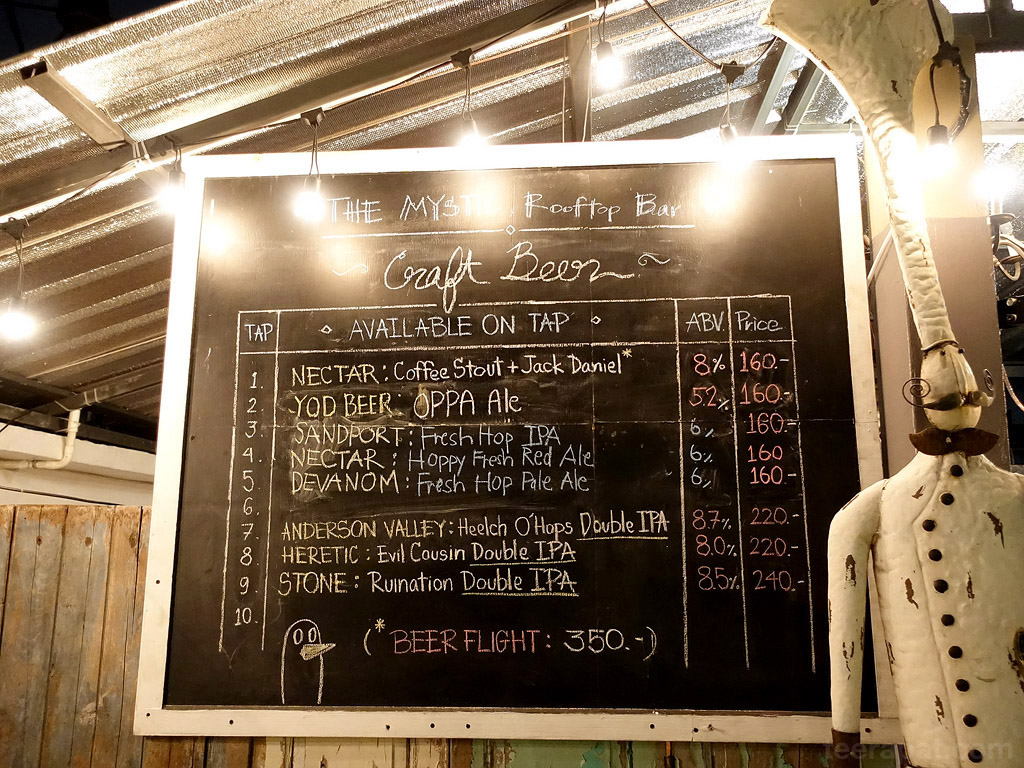 THE MYST Rooftop Bar
~ Craft Beer ~
TAP ◇ AVAILABLE ON TAP ◇ ABV. Price
1. NECTAR: Coffee Stout + Jack Daniel* 8% 160.-
2. YOD BEER: OPPA Ale 5.2% 160.-
3. SANDPORT: Fresh Hop IPA 6% 160.-
4. NECTAR: Hoppy Fresh Red Ale 6% 160
5. DEVANOM: Fresh Hop Pale Ale 6% 160.-
6.
7. ANDERSON VALLEY: Heelch O'Hops Double IPA 8.7% 220.-
8. HERETIC: Evil Cousin Double IPA 8.0% 220.-
9. STONE: Ruination Double IPA 8.5% 240.-
10.
(* BEER FLIGHT: 350.-)